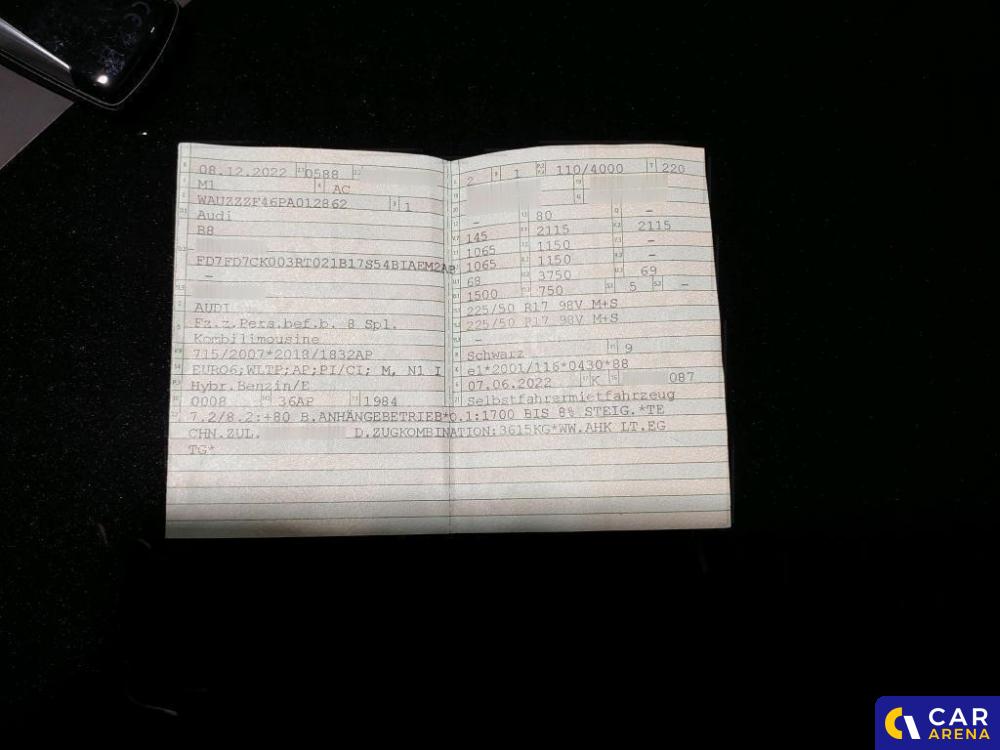 08.12.2022 0588
M1 AC
WAUZZZF46PA012862 1
Audi
B8
-
FD7FD7CK003RT021B17S54BIAEM2AP
-
AUDI
Fz.z.Pers.bef.b. 8 Spl.
Kombilimousine
715/2007*2018/1832AP
EURO6;WLTP;AP;PI/CI; M, N1 I
Hybr.Benzin/E
0008 36AP 1984
2 1 110/4000 220
- 80 -
145 2115 2115
1065 1150 -
1065 1150 -
68 3750 69
1500 750 5 -
225/50 R17 98V M+S
225/50 R17 98V M+S
-
Schwarz 9
e1*2001/116*0430*88
07.06.2022 K 087
Selbstfahrermietfahrzeug
7.2/8.2:+80 B.ANHÄNGEBETRIEB*o.1:1700 BIS 8% STEIG.*TE
CHN.ZUL. D.ZUGKOMBINATION:3615KG*WW.AHK LT.EG
TG*
CAR
ARENA